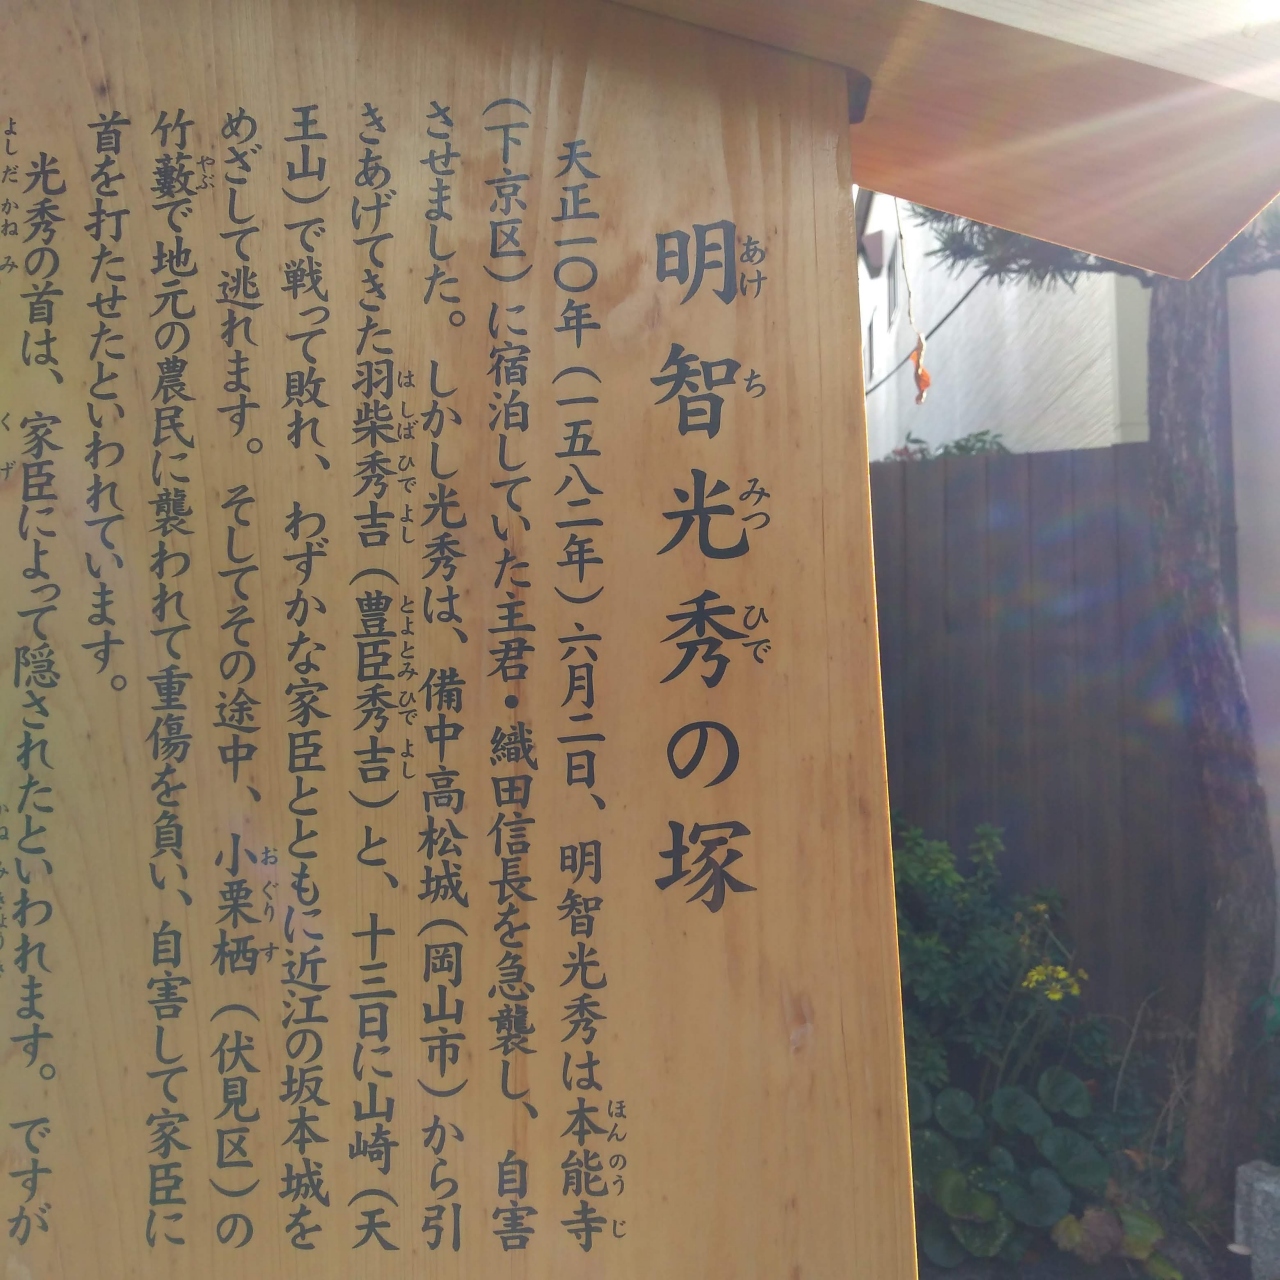 明智光秀の塚
天正一〇年（一五八二年）六月二日、明智光秀は本能寺
（下京区）に宿泊していた主君・織田信長を急襲し、自害
させました。しかし光秀は、備中高松城（岡山市）から引
きあげてきた羽柴秀吉（豊臣秀吉）と、十三日に山崎（天
王山）で戦って敗れ、わずかな家臣とともに近江の坂本城を
めざして逃れます。そしてその途中、小栗栖（伏見区）の
竹藪で地元の農民に襲われて重傷を負い、自害して家臣に
首を打たせたといわれています。
光秀の首は、家臣によって隠されたといわれます。ですが